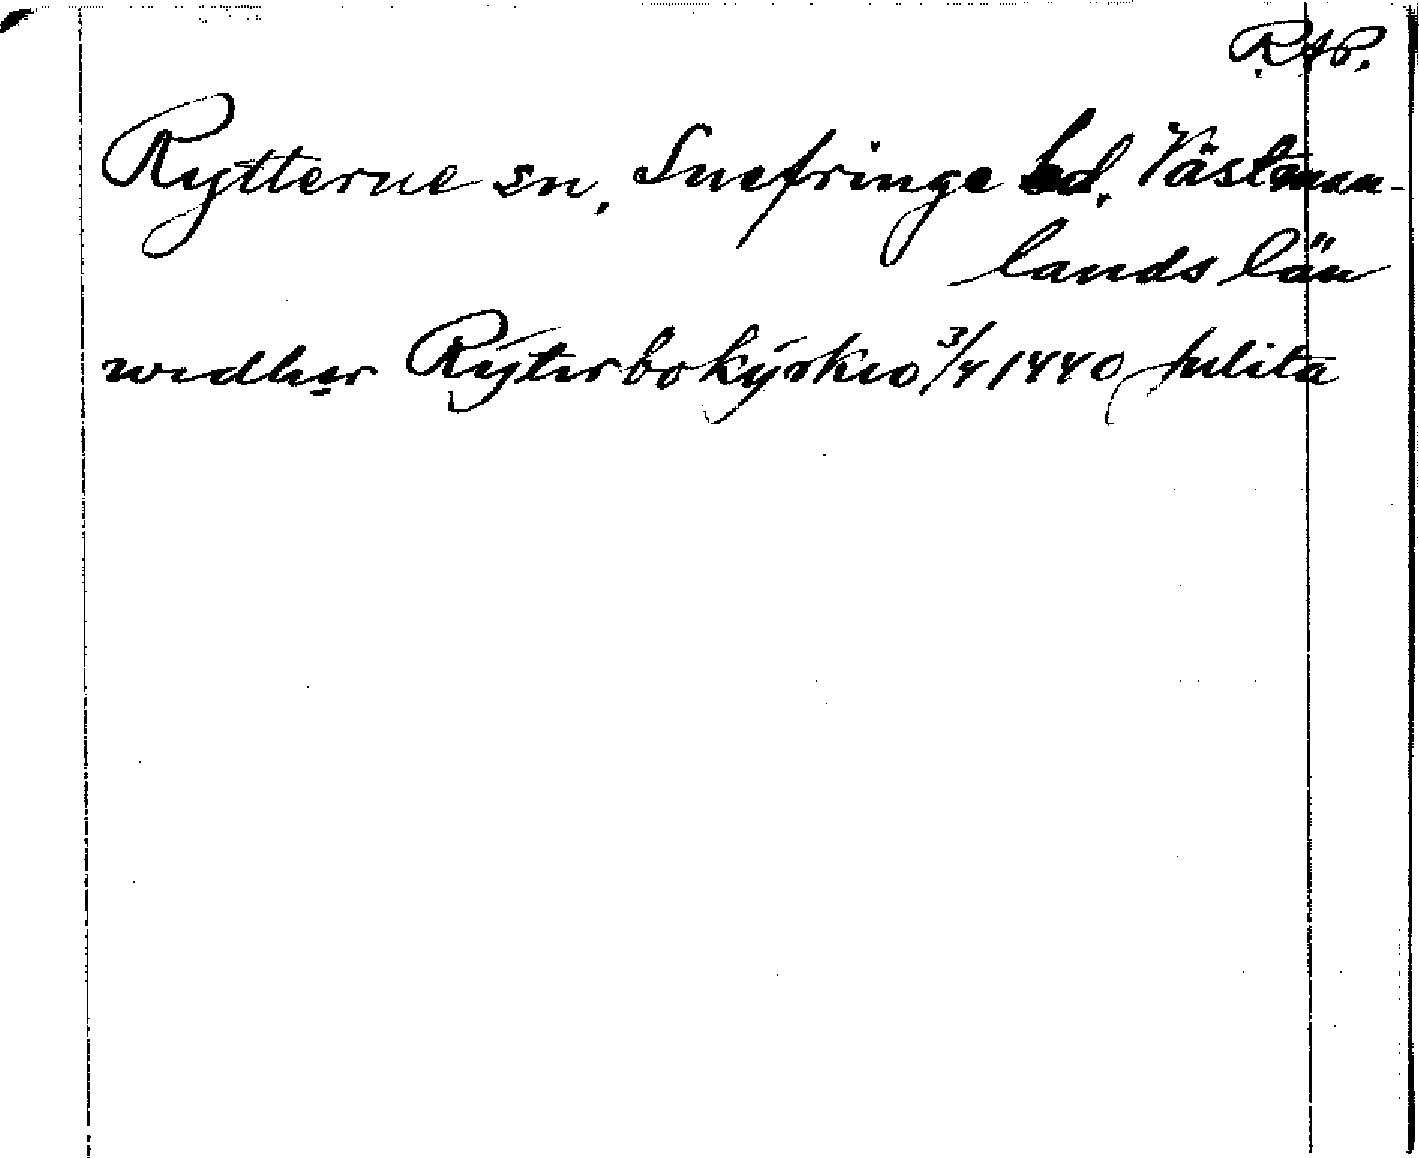 R.A.P.
Rytterne sn, Snefringe hd, Västman-
lands län
wedher Rÿterbo kÿrkio 3/4 1440 Julita